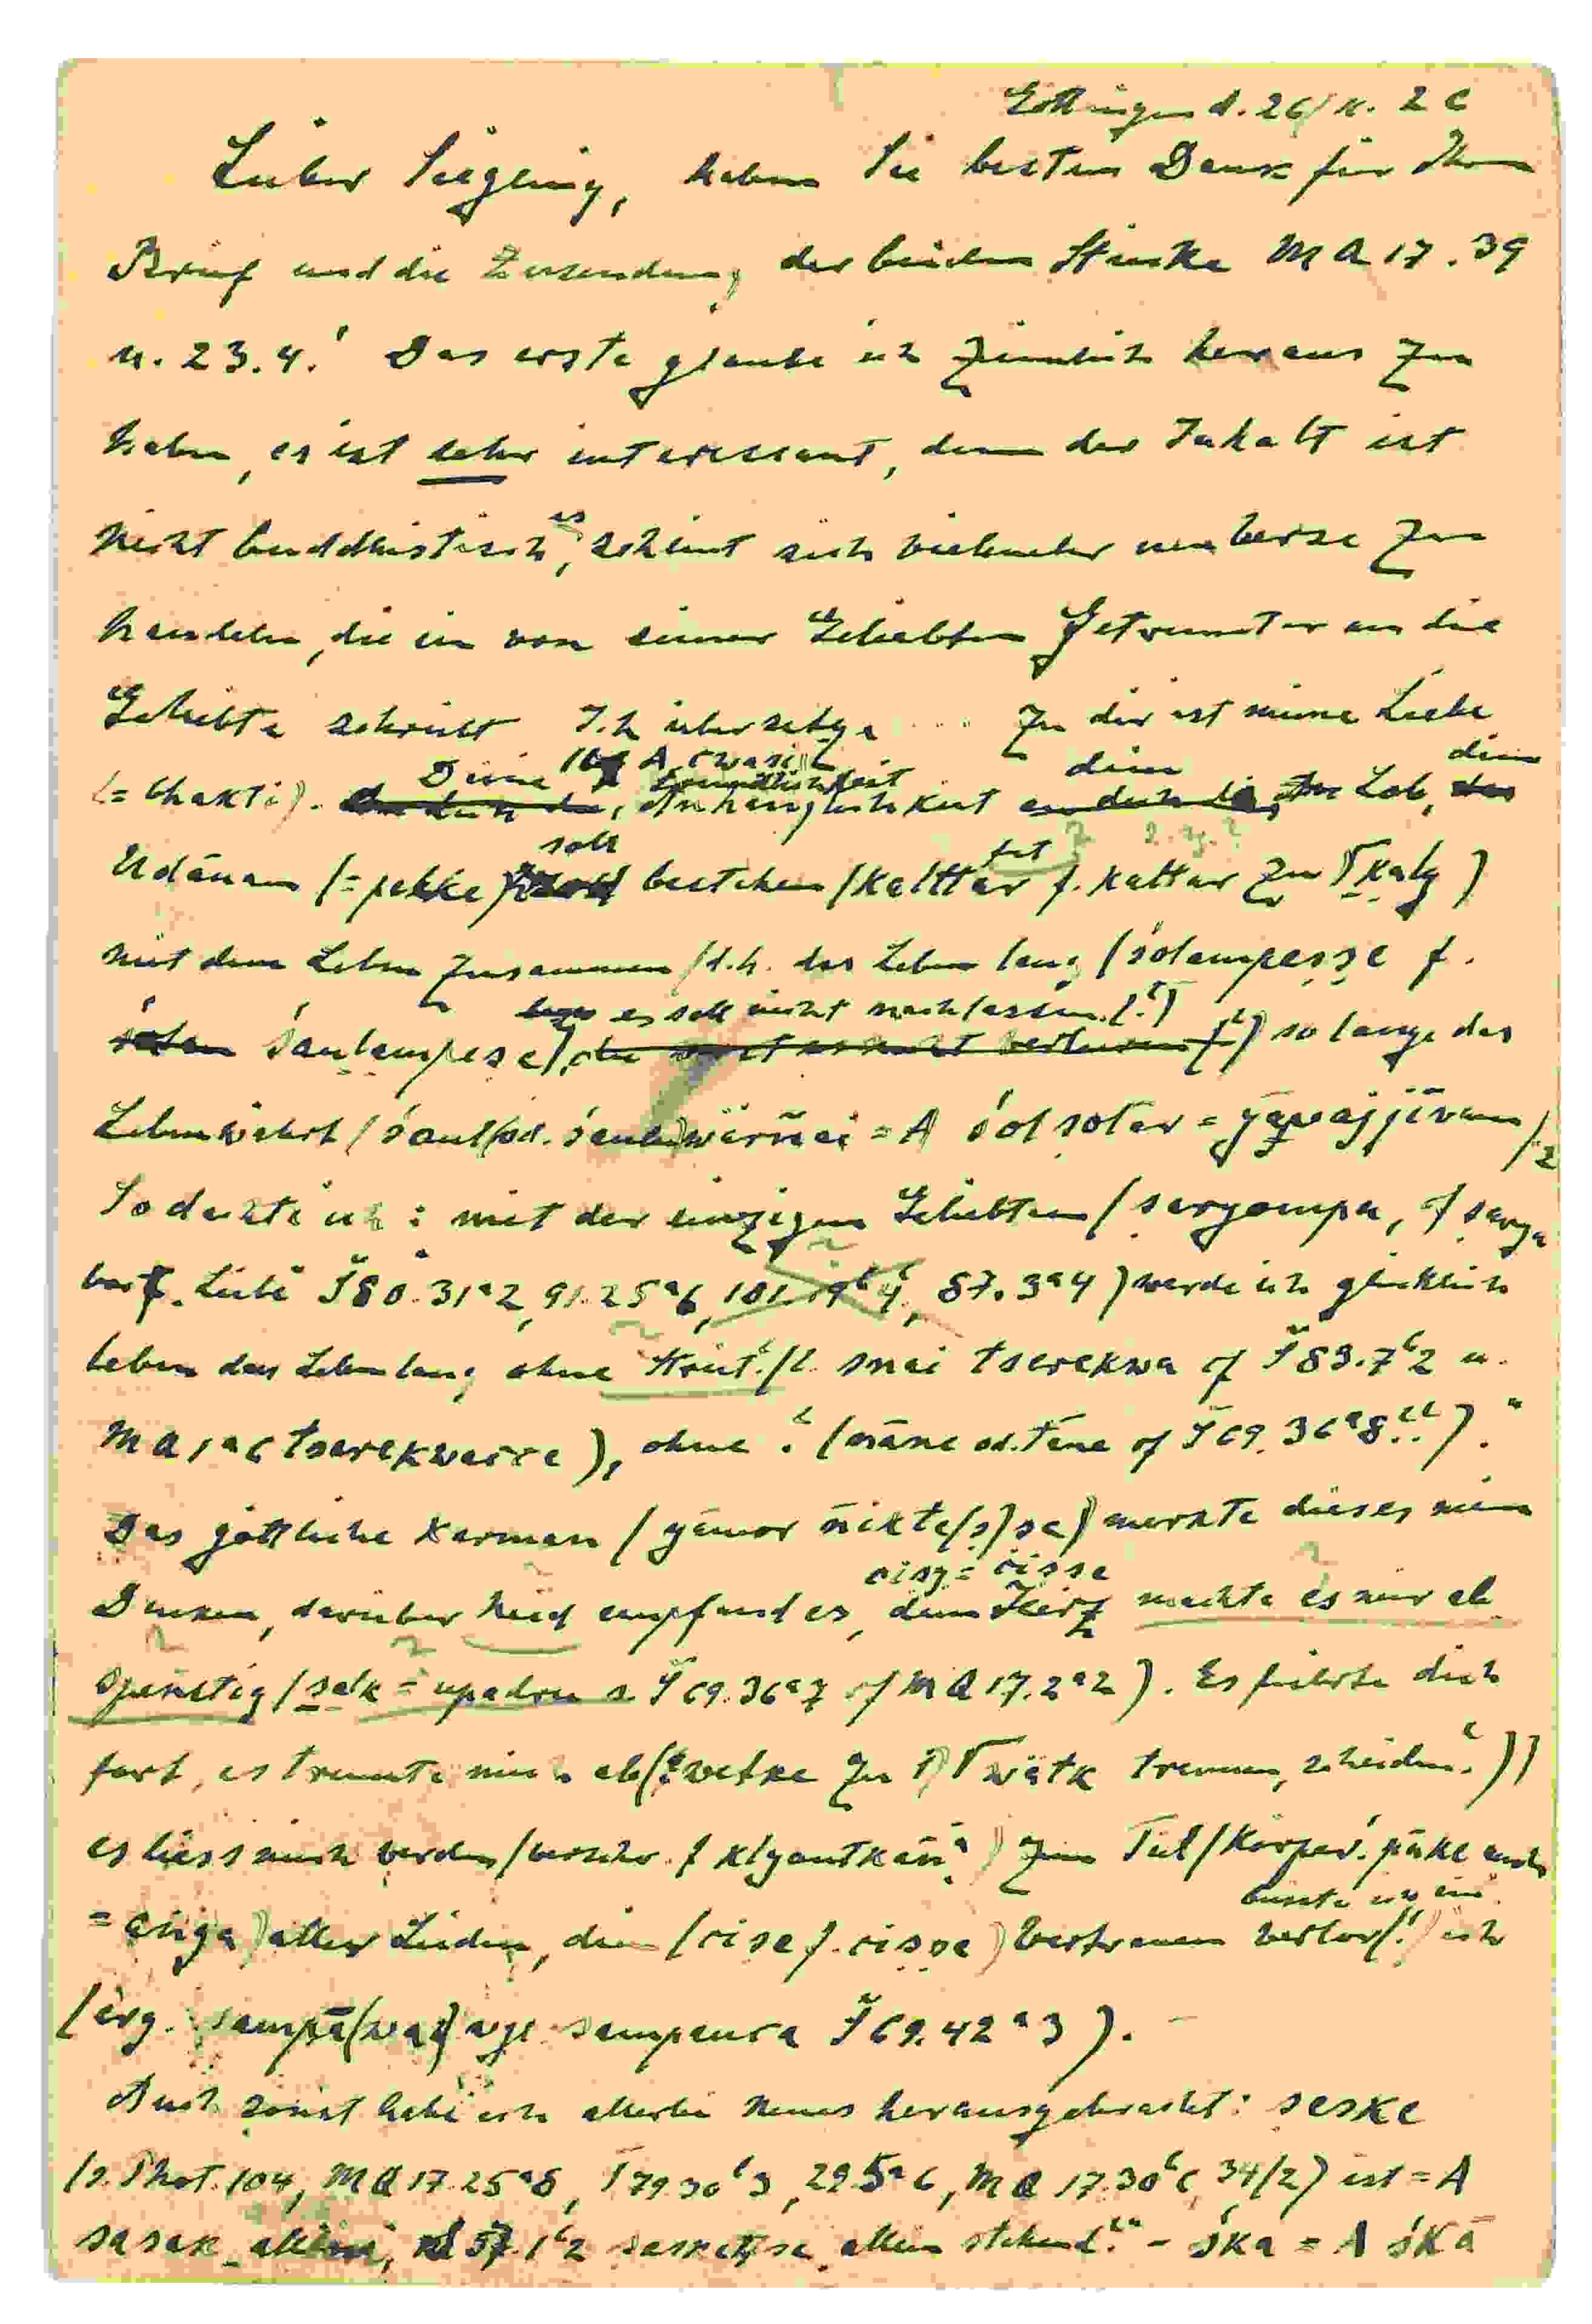 Göttingen d. 26/
Lieber Siegling, haben Sie besten Dank für Ihren
Brief und die Zusendung der beiden Stücke M Q 17.39
u. 23.4. Das erste glaube ich ziemlich heraus zu
haben, es ist sehr interessant, denn der Inhalt ist
nicht buddhistisch, es scheint sich vielmehr um Verse zu
handeln, die ein von einer Geliebten Getrennter an die
Geliebte schreibt. Ich übersetze ... Zu dir ist meine Liebe
(= bhakti). Deine Anhänglichkeit dein Lob, dein
Udānam (= pelke) soll bestehen (kalttar f. kattar zu √kaly)
mit dem Leben zusammen / d.h. das Leben lang (śolampesse f.
śaulampese), es soll nicht nachlassen (?) so lange das
Leben währt (śaul (od. śaule) wärñai = A śol sotar = yāvajjīvam)
So dachte ich: mit der einzigen Geliebten (saryompa, cf sarya
Liebe Š 80.31ᵃ2, 91.25ᵃ6, 87.3ᵃ4) werde ich glücklich
leben das Leben lang ohne Streit? (l. snai tserekwa cf Š 83.7ᵇ2 u.
M Q 1ᵃ6 tserekwacce), ohne ? (māne od. tāne cf Š 69.36ᵃ8??)."
Das göttliche Karman (yāmor ñikte(ṣ)ṣe) merkte dieses mein
Denken, darüber Neid empfand es, dein Herz ciṣy = cisse machte es mir ab
spenstig (salk = upadru s. Š 69.36ᵃ7 cf M Q 17.2ᵃ2). Es führte dich
fort, es trennte mich ab (wetke zu √wätk trennen, scheiden?))
es liess mich werden (klyautkāñ) zum Teil (Körper? pāke auch
= aṅga) aller Leiden, dein (cise f. cisse) Vertrauen büsste ich ein verlor(?) ich
(erg. sampā(wa) sampaura Š 69.42ᵃ3). –
Auch sonst habe ich allerlei Neues herausgebracht: seske
(s. Phot. 104, M Q 17.25ᵃ8, Š 79.30ᵇ3, 29.5ᵃ6, M Q 17.30ᵇ6, 34/2) ist = A
sasak allein, 1ᵇ2 allein stehend? – śka = A śkā